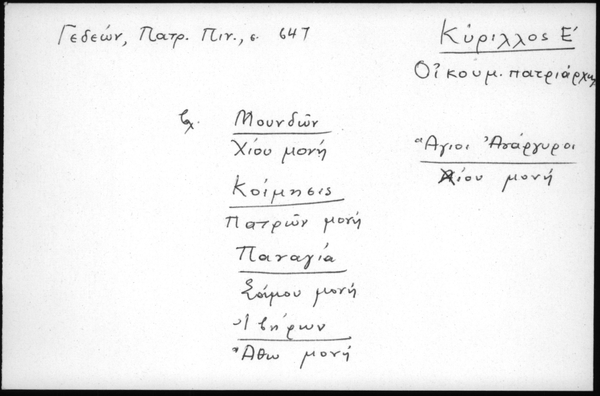 Γεδεών, Πατρ. Πιν., σ. 647
Κύριλλος Ε'
Οἰκουμ. πατριάρχης
βχ. Μουνδῶν
Χίου μονή
Κοίμησις
Πατρῶν μονή
Παναγία
Σάμου μονή
Ἰβήρων
Ἄθω μονή
Ἅγιοι Ἀνάργυροι
Χίου μονή